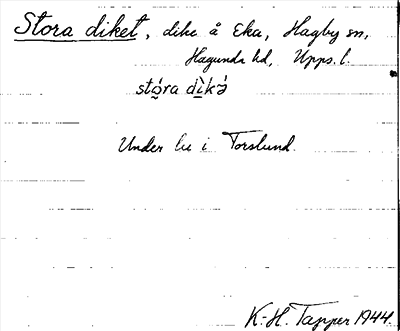 Stora diket, dike å Eka, Hagby sn,
Hagunda hd, Upps. l.
stóra dìkə́
Under lu i Torslund.
K.-H. Tapper 1944.